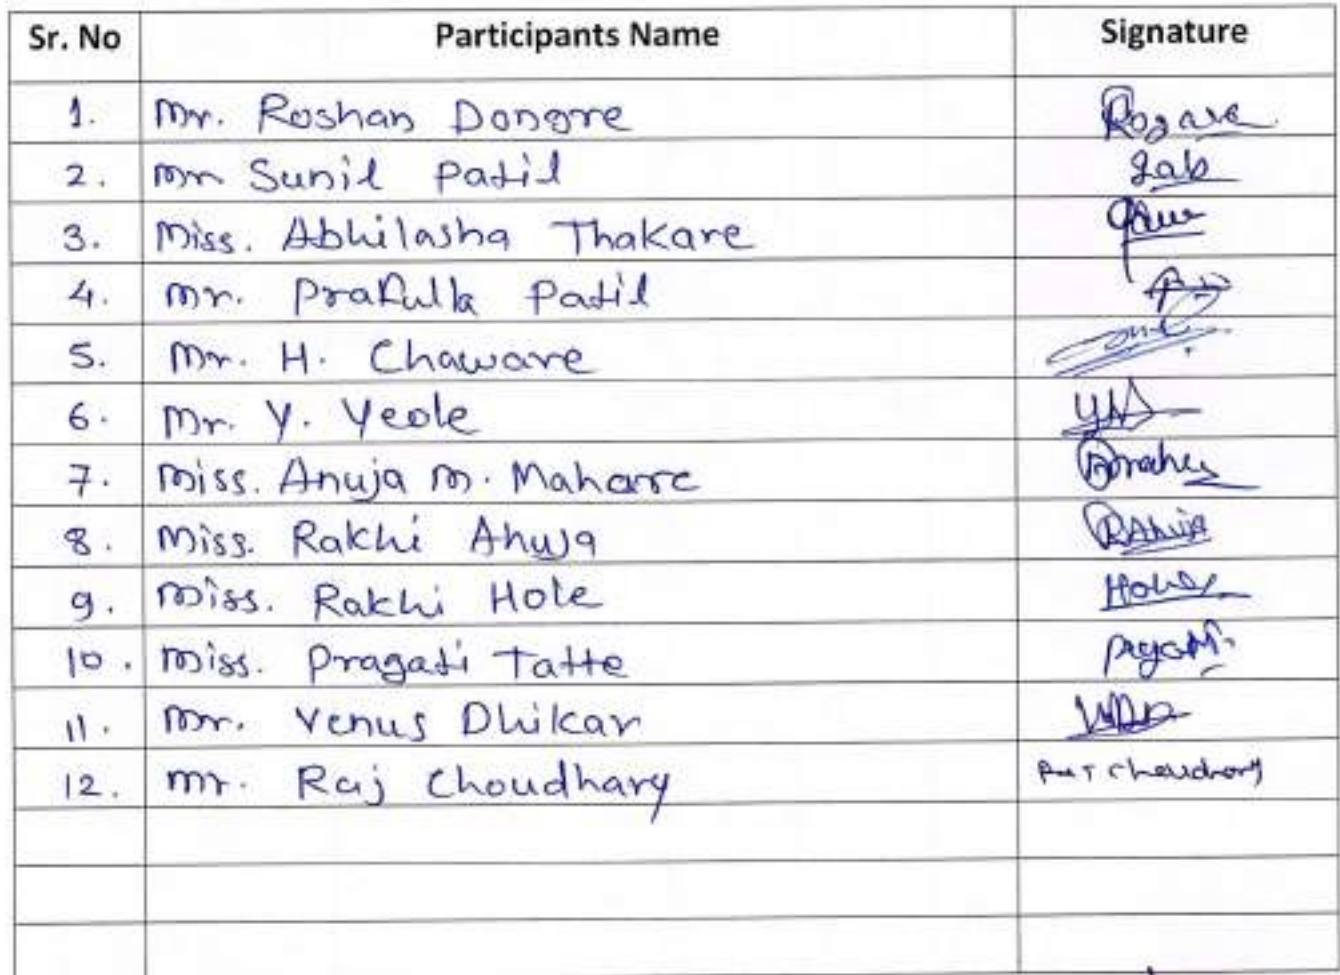 Sr. No Participants Name Signature
1. Mr. Roshan Dongre
2. Mr Sunil Patil
3. Miss. Abhilasha Thakare
4. Mr. Prafulla Patil
5. Mr. H. Chaware
6. Mr. Y. Yeole
7. Miss. Anuja M.
8. Miss. Rakhi Ahuja RAhuja
9. Miss. Rakhi Hole
10. Miss. Pragati Tatte
11. Mr. Venus Dhikar
12. Mr. Raj Choudhary